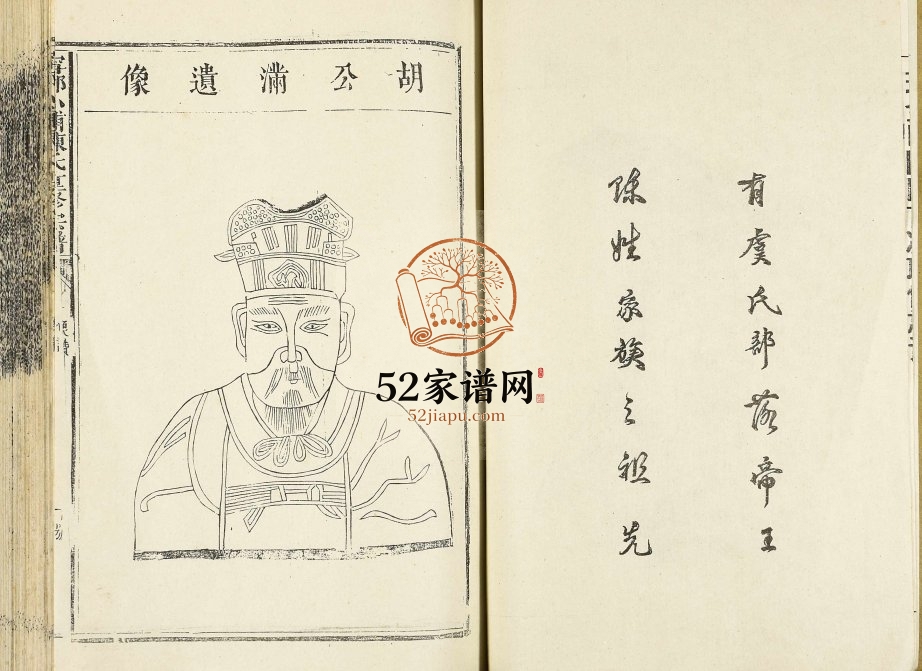 有虞氏部落帝王
陈姓家族之祖先
胡公滿遺像
52家谱网
52jiapu.com